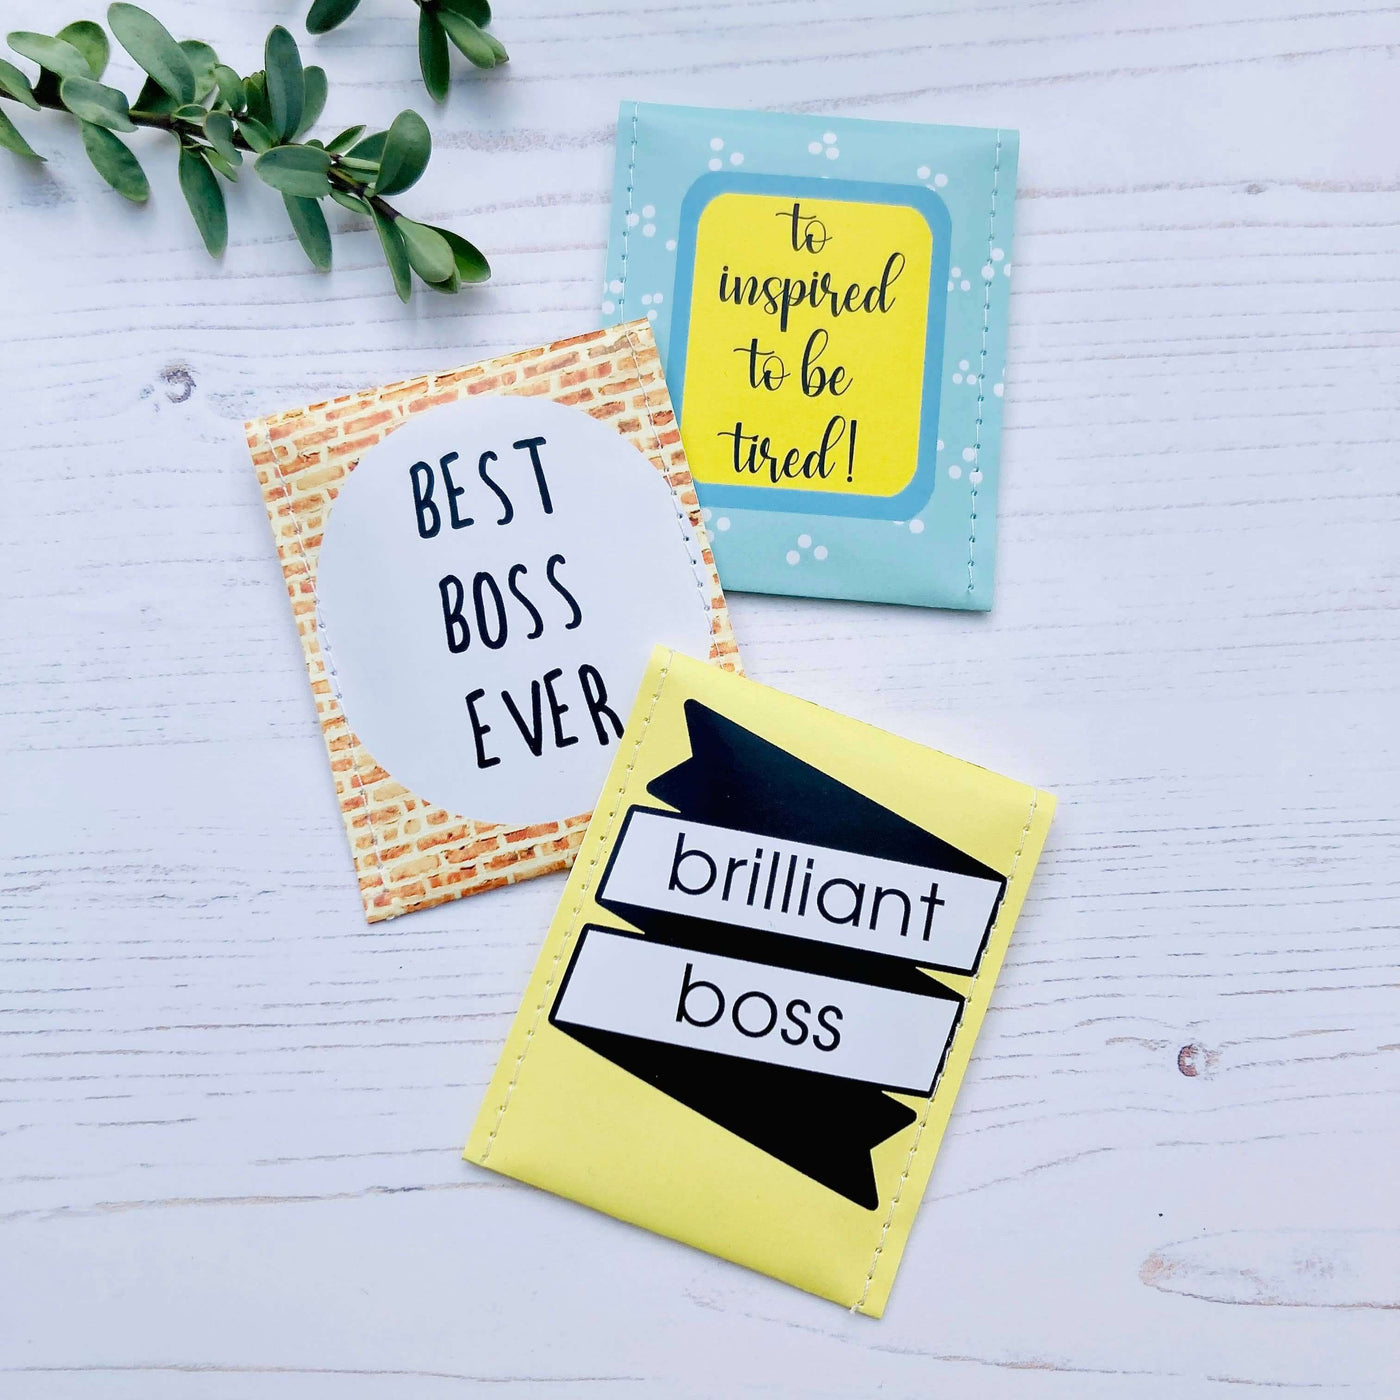 to
inspired
to be
tired!
BEST
BOSS
EVER
brilliant
boss